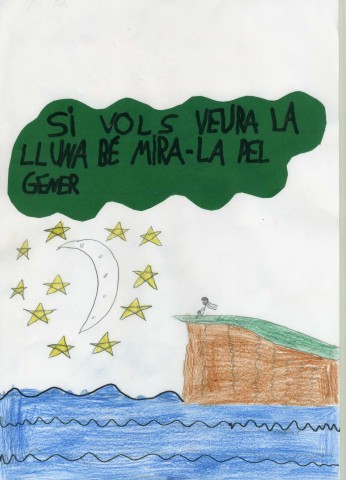 SI VOLS VEURA LA
LLUNA BÉ MIRA-LA PEL
GENER